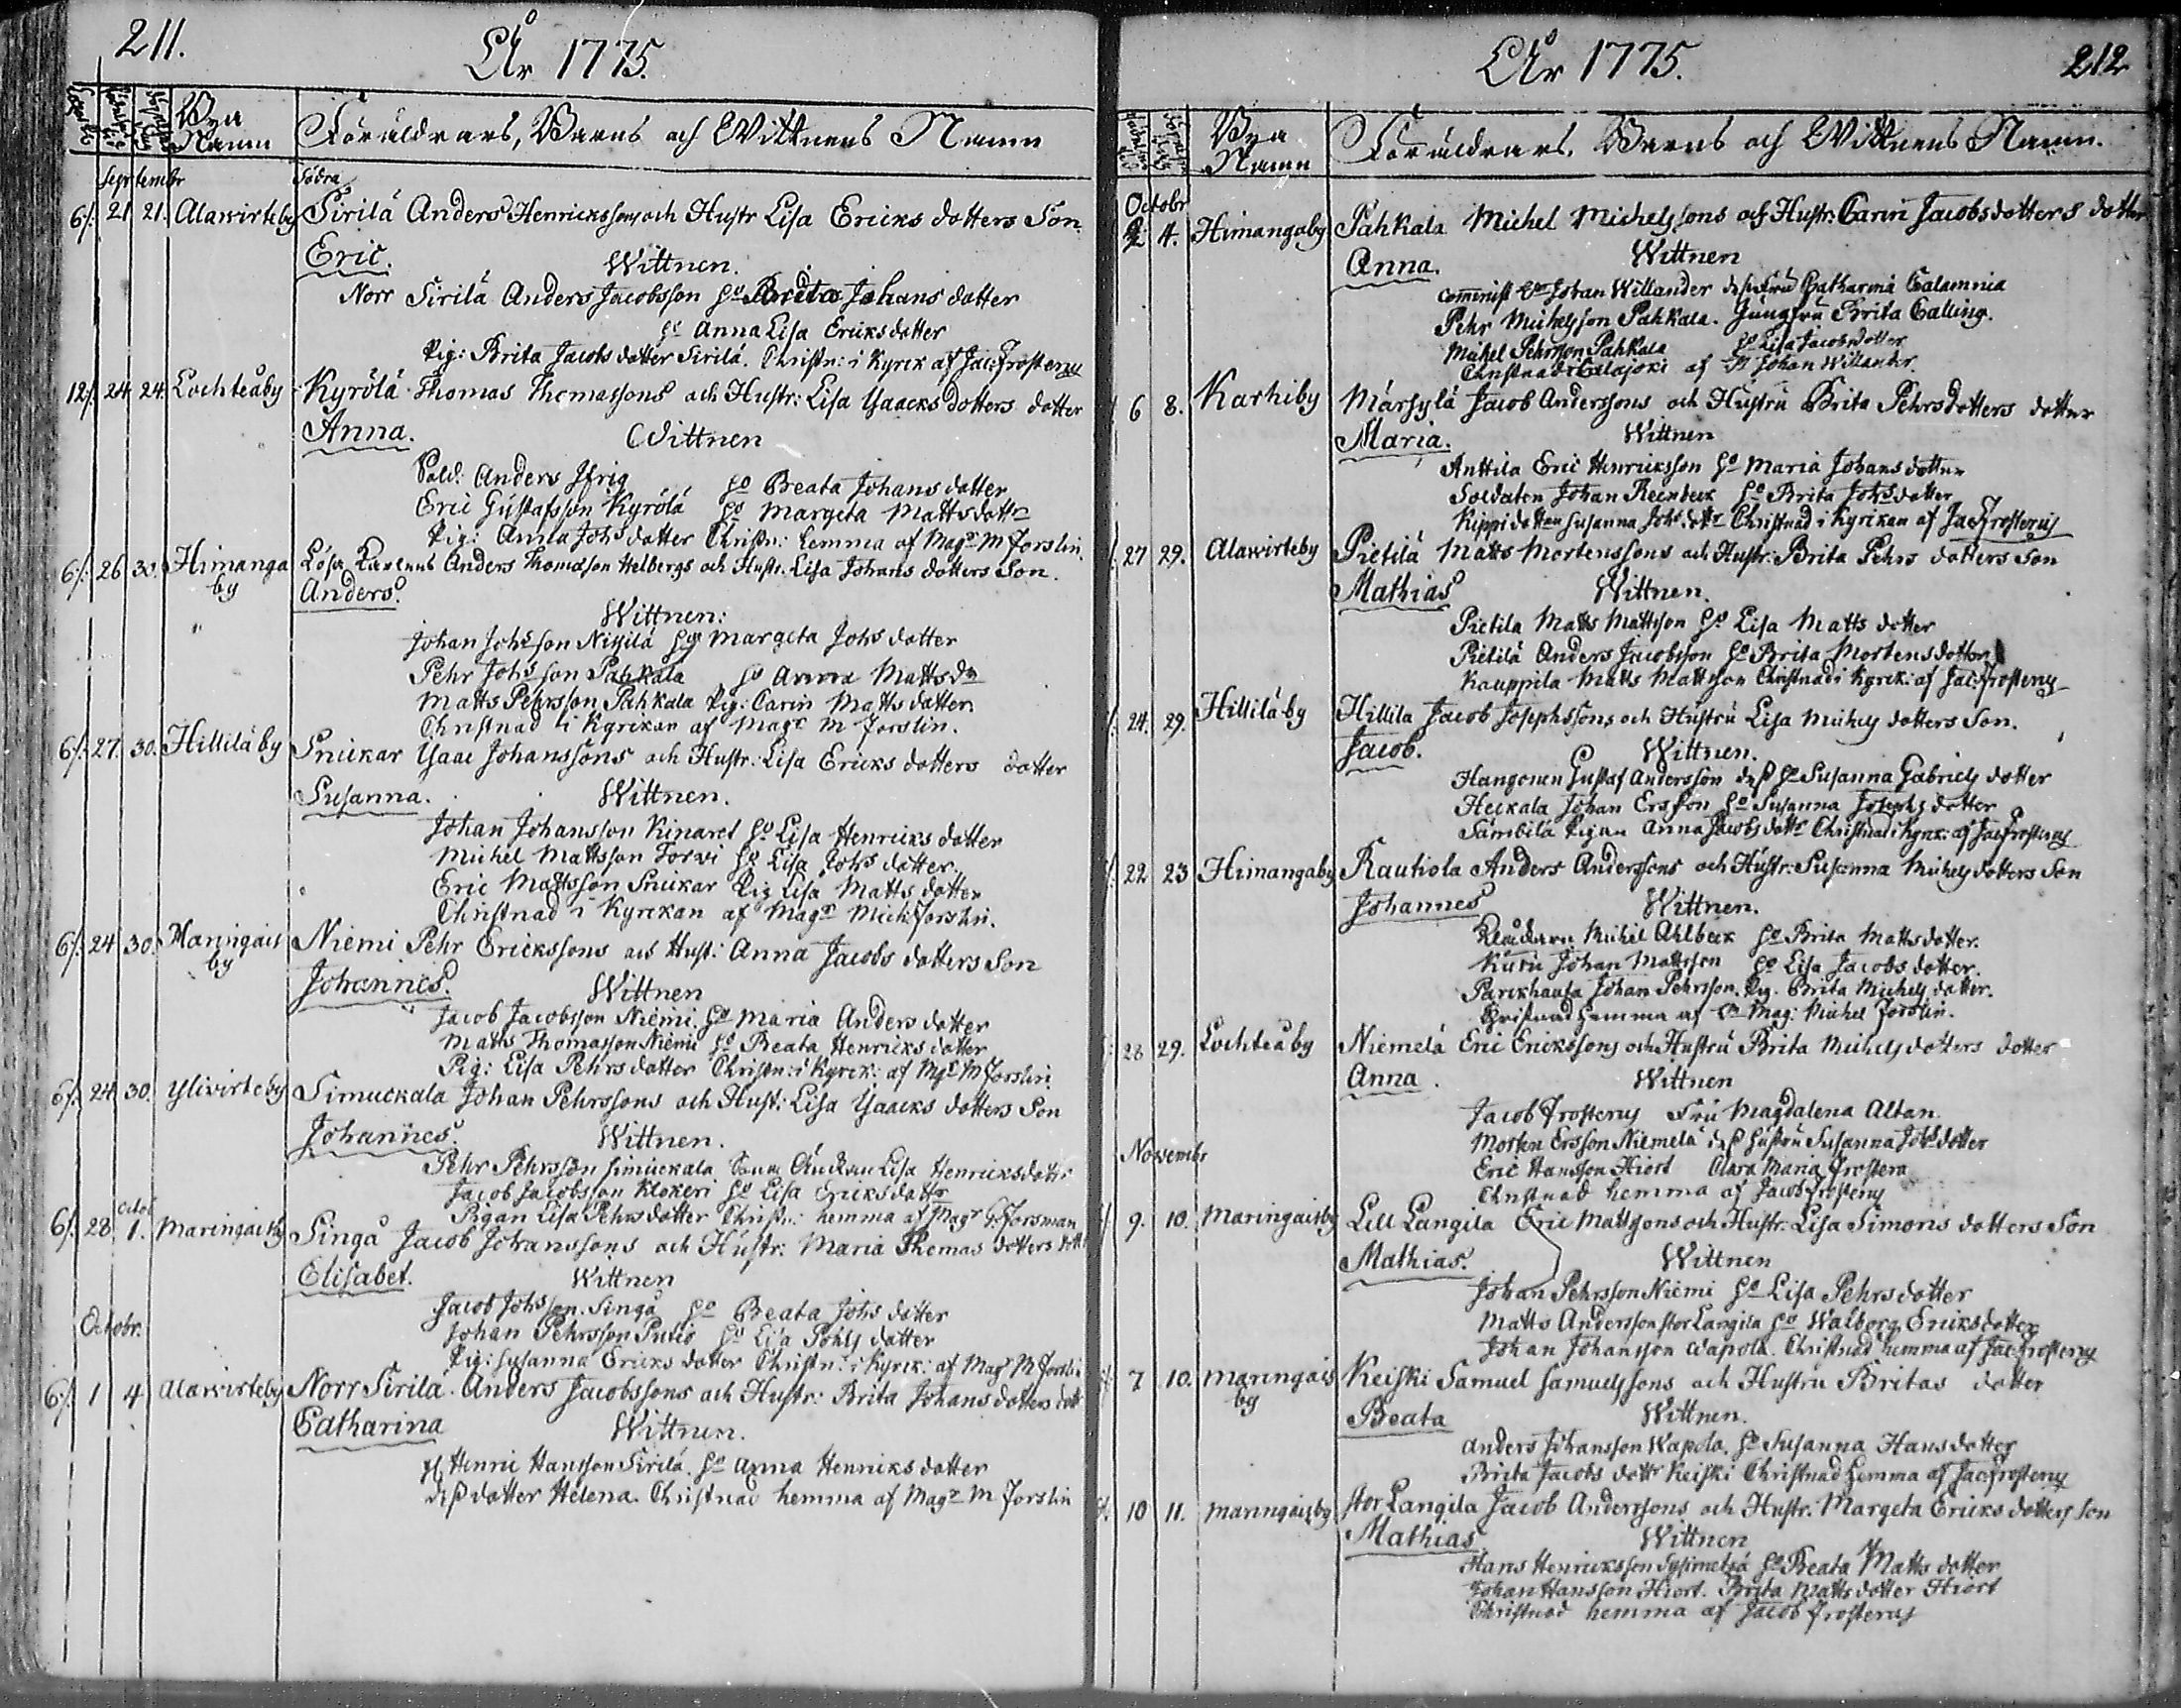 211.
År 1775.
Bya Namn
Föräldrars, Barns och Wittnens Namn
Septembr
Södra
6/. 21 21. Alawirteby Sirilä Anders Henricssons och Hustr Lisa Ericks dotters Son
Eric.
Wittnen.
Norr Sirilä Anders Jacobsson Ho Brita Johans dotter
Ho Anna Lisa Ericksdotter
Pig: Brita Jacobs dotter Sirilä. Christn: i Kyrck af Jac: Frosterus
12/. 24 24. Lochteåby Kyrölä Thomas Thomassons och Hustr: Lisa Ysaacks dotters dotter
Anna.
Wittnen
Sold: Anders Ifrig Ho Beata Johans dotter
Eric Gustafsson Kyrölä Ho Margeta Mattsdottr
Pig: Anna Johs dotter Christn: hemma af Magr M Forslin.
6/. 26 30. Himanga by Anders Thomasson Helbergs och Hustr. Lisa Johans dotters Son.
Anders.
Wittnen:
Johan Johsson Nisilä Ho Margeta Johs dotter
Pehr Johs son Pahkala Ho Anna Mattsdr
Matts Pehrsson Pahkala Pig: Carin Matts dotter.
Christnad i Kyrckan af Magr M Forslin.
6/. 27. 30. Hillilä by Snickar Ysaac Johanssons och Hustr: Lisa Ericks dotters dotter
Susanna.
Wittnen.
Johan Johansson Kinaret Ho Lisa Henricks dotter
Michel Mattsson Torvi Ho Lisa Johs dotter.
Eric Mattsson Snickar Pig Lisa Matts dotter
Christnad i Kyrckan af Magr Mich Forslin.
6/. 24 30. Maringais by Niemi Pehr Erickssons och Hust: Anna Jacobs dotters Son
Johannes.
Wittnen
Jacob Jacobsson Niemi. Ho Maria Anders dotter
Matts Thomasson Niemi Ho Beata Henricks dotter
Pig: Lisa Pehrs dotter Christn: i Kyrck: af Mgr M Forslin.
6/. 24 30. Ylivirteby Simuckala Johan Pehrssons och Hust: Lisa Ysaacks dotters Son
Johannes.
Wittnen.
Pehr Pehrsson Simuckala Lisa Henricksdottr
Jacob Jacobsson Klokeri Ho Lisa Ericksdottr
Pigan Lisa Pehrs dotter Christn: hemma af Magr G. Forsman
6/. 28 Octob 1. Maringaisby Singå Jacob Johanssons och Hustr: Maria Thomas dotters dott
Elisabet.
Wittnen
Jacob Johs son. Singå Ho Beata Johs dotter
Johan Pehrsson Putio Ho Lisa Pohls dotter
Pig: Susanna Ericks dotter Christn: i Kyrck: af Magr M Forsli
Octobr.
6/. 1 4 Alawirteby Norr Sirilä. Anders Jacobssons och Hustr: Brita Johans dotters dott
Catharina
Wittnen.
Henric Hansson Sirilä. Ho Anna Henricks dotter
dess dotter Helena. Christnad hemma af Magr M Forslin
År 1775.
212
Bya Namn
Föräldrars, Barns och Wittnens Namn.
Octobr
2 4. Himangaby Pahkala Michel Michelssons och Hustr: Carin Jacobsdotters dotter
Anna.
Wittnen
Comminist Johan Willander dess fru Catharina Calamnia
Pehr Michelsson Pahkala. Jungfru Brita Calling.
Michel Pehrsson Pahkala Ho Lisa Jacobsdotter
Christnad i Calajoki af Johan Willander.
6 8. Karhiby Märsylä Jacob Anderssons och Hustru Brita Pehrsdotters dotter
Maria.
Wittnen
Anttila Eric Henricksson Ho Maria Johans dotter
Soldaten Johan Reenbeck Ho Brita Johs dotter
Kippi dottren Susanna Johs dottr Christnad i Kyrckan af Jac Frosterus
27 29. Alawirteby Pietilä Matts Mortenssons och Hustr: Brita Pehrs dotters Son
Mathias
Wittnen.
Pietila Matts Mattsson Ho Lisa Matts dotter
Pietilä Anders Jacobsson Ho Brita Mortensdotter
Kauppila Matts Mattsson Christnad i Kyrck: af Jac: Frosterus
24. 29. Hillilä by Hillila Jacob Josephssons och Hustru Lisa Michels dotters Son.
Jacob.
Wittnen.
Hangonen Gustaf Andersson dess Ho Susanna Gabriels dotter
Heckala Johan Ersson Ho Susanna Josephs dotter
Sämbilä Pigan Anna Jacobs dottr Christnad i Kyrck: af Jac Frosterus
22 23 Himangaby Rautiola Anders Anderssons och Hustr: Susanna Michels dotters Son
Johannes
Wittnen.
Michel Ahlbeck Ho Brita Mattsdotter.
Kuru Johan Mattsson Ho Lisa Jacobs dotter.
Parckhausa Johan Pehrsson. Pig. Brita Michels dotter.
Christnad hemma af Mag: Michel Forslin.
28 29. Lochteåby Niemelä Eric Erickssons och Hustru Brita Michels dotters dotter
Anna.
Wittnen
Jacob Frosterus Fru Magdalena Altan.
Morten Ersson Niemelä dess hustru Susanna Johs dotter
Eric Hansson Hiort Clara Maria Frostera
Christnad hemma af Jacob Frosterus
Novembr
9. 10. Maringaisby Lill Långila Eric Mattssons och Hustr. Lisa Simons dotters Son
Mathias.
Wittnen
Johan Pehrsson Niemi Ho Lisa Pehrs dotter
Matts Andersson stor Långila Ho Walborg Ericksdotter
Johan Johansson Wapola. Christnad hemma af Jac: Frosterus
7 10. Maringais by Keiski Samuel Samuelssons och Hustru Britas dotter
Beata
Wittnen.
Anders Johansson Wapola. Ho Susanna Hansdotter
Brita Jacobs dottr Keiski Christnad hemma af Jac Frosterus
10 11. Maringaisby stor Långila Jacob Anderssons och Hustr: Margeta Ericks dotters Son
Mathias
Wittnen
Hans Henricksson Sysimetsä Ho Beata Matts dotter
Johan Hansson Hiort. Brita Matts dotter Hiort
Christnad hemma af Jacob Frosterus